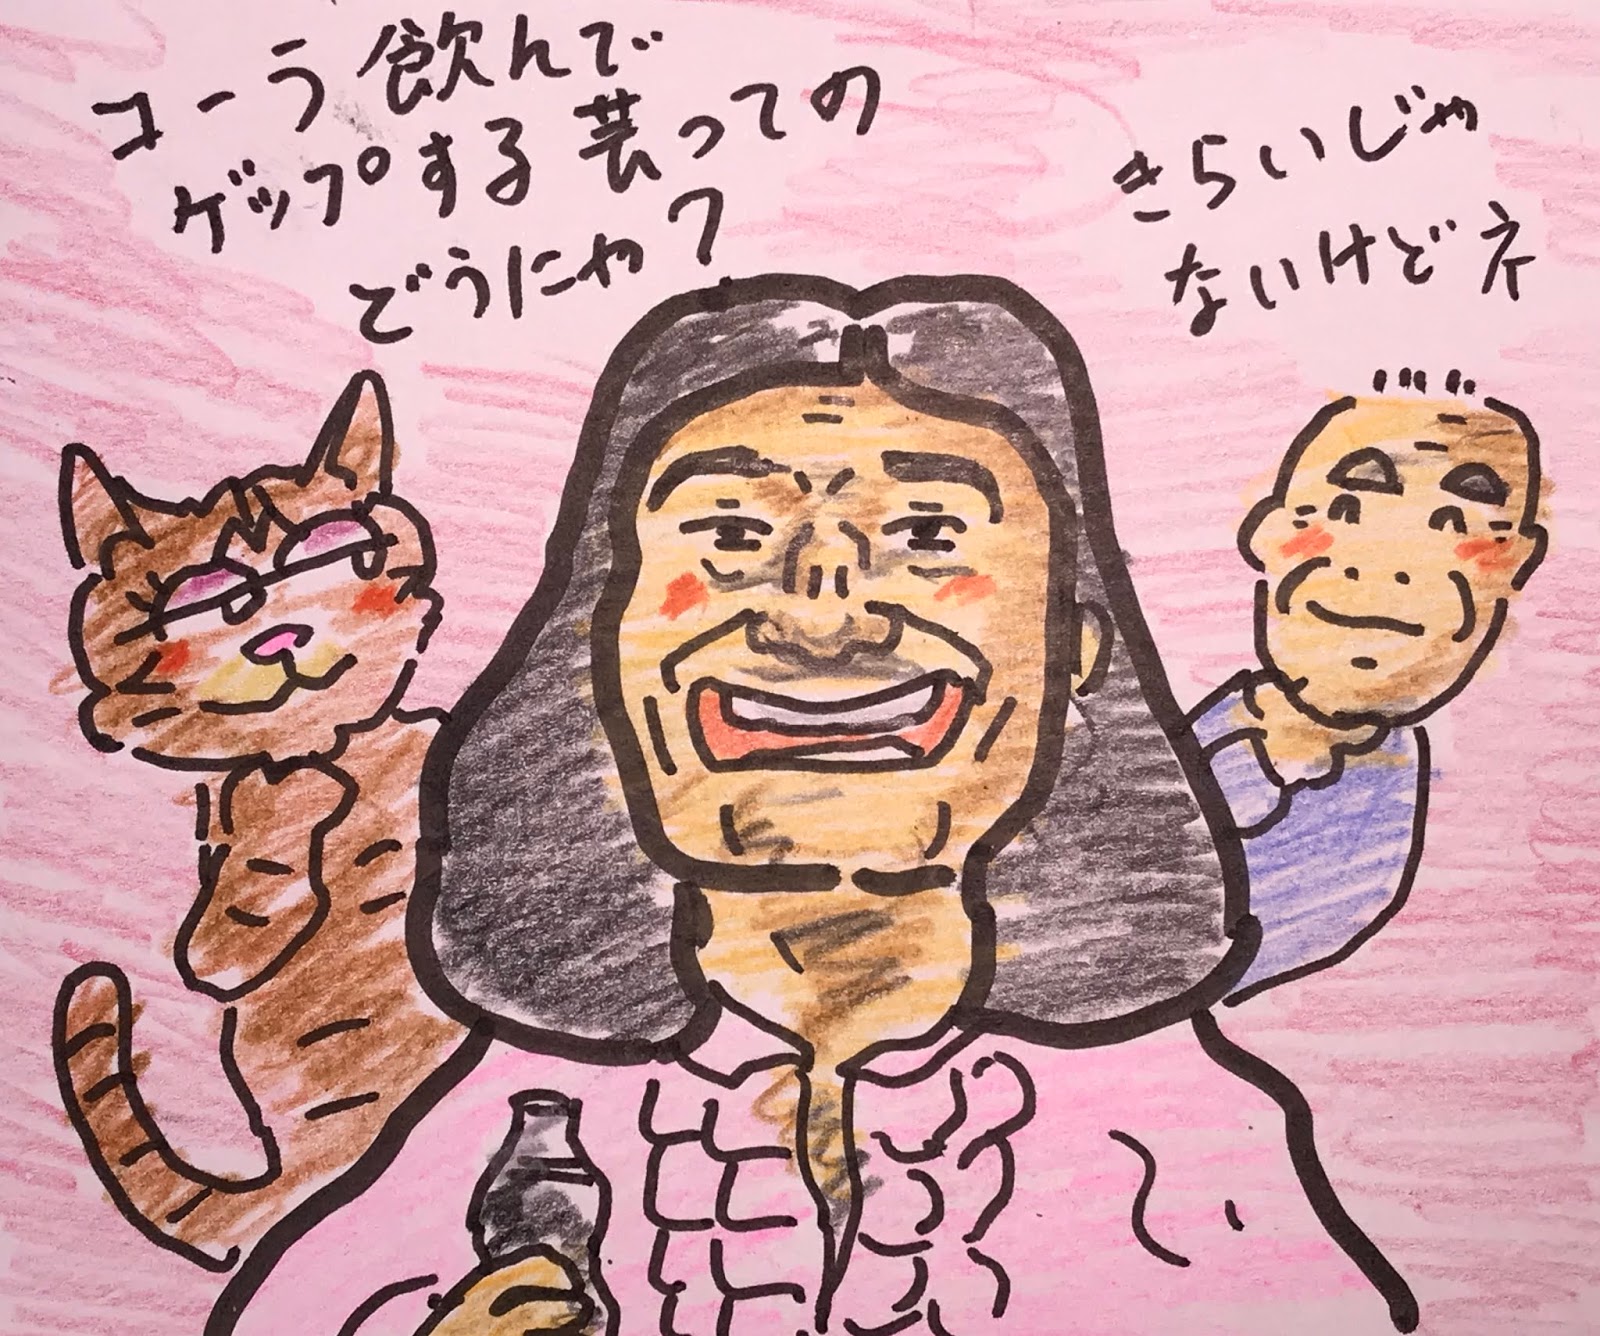 コーラ飲んで
ゲップする芸っての
どうにゃ？
きらいじゃ
ないけどネ